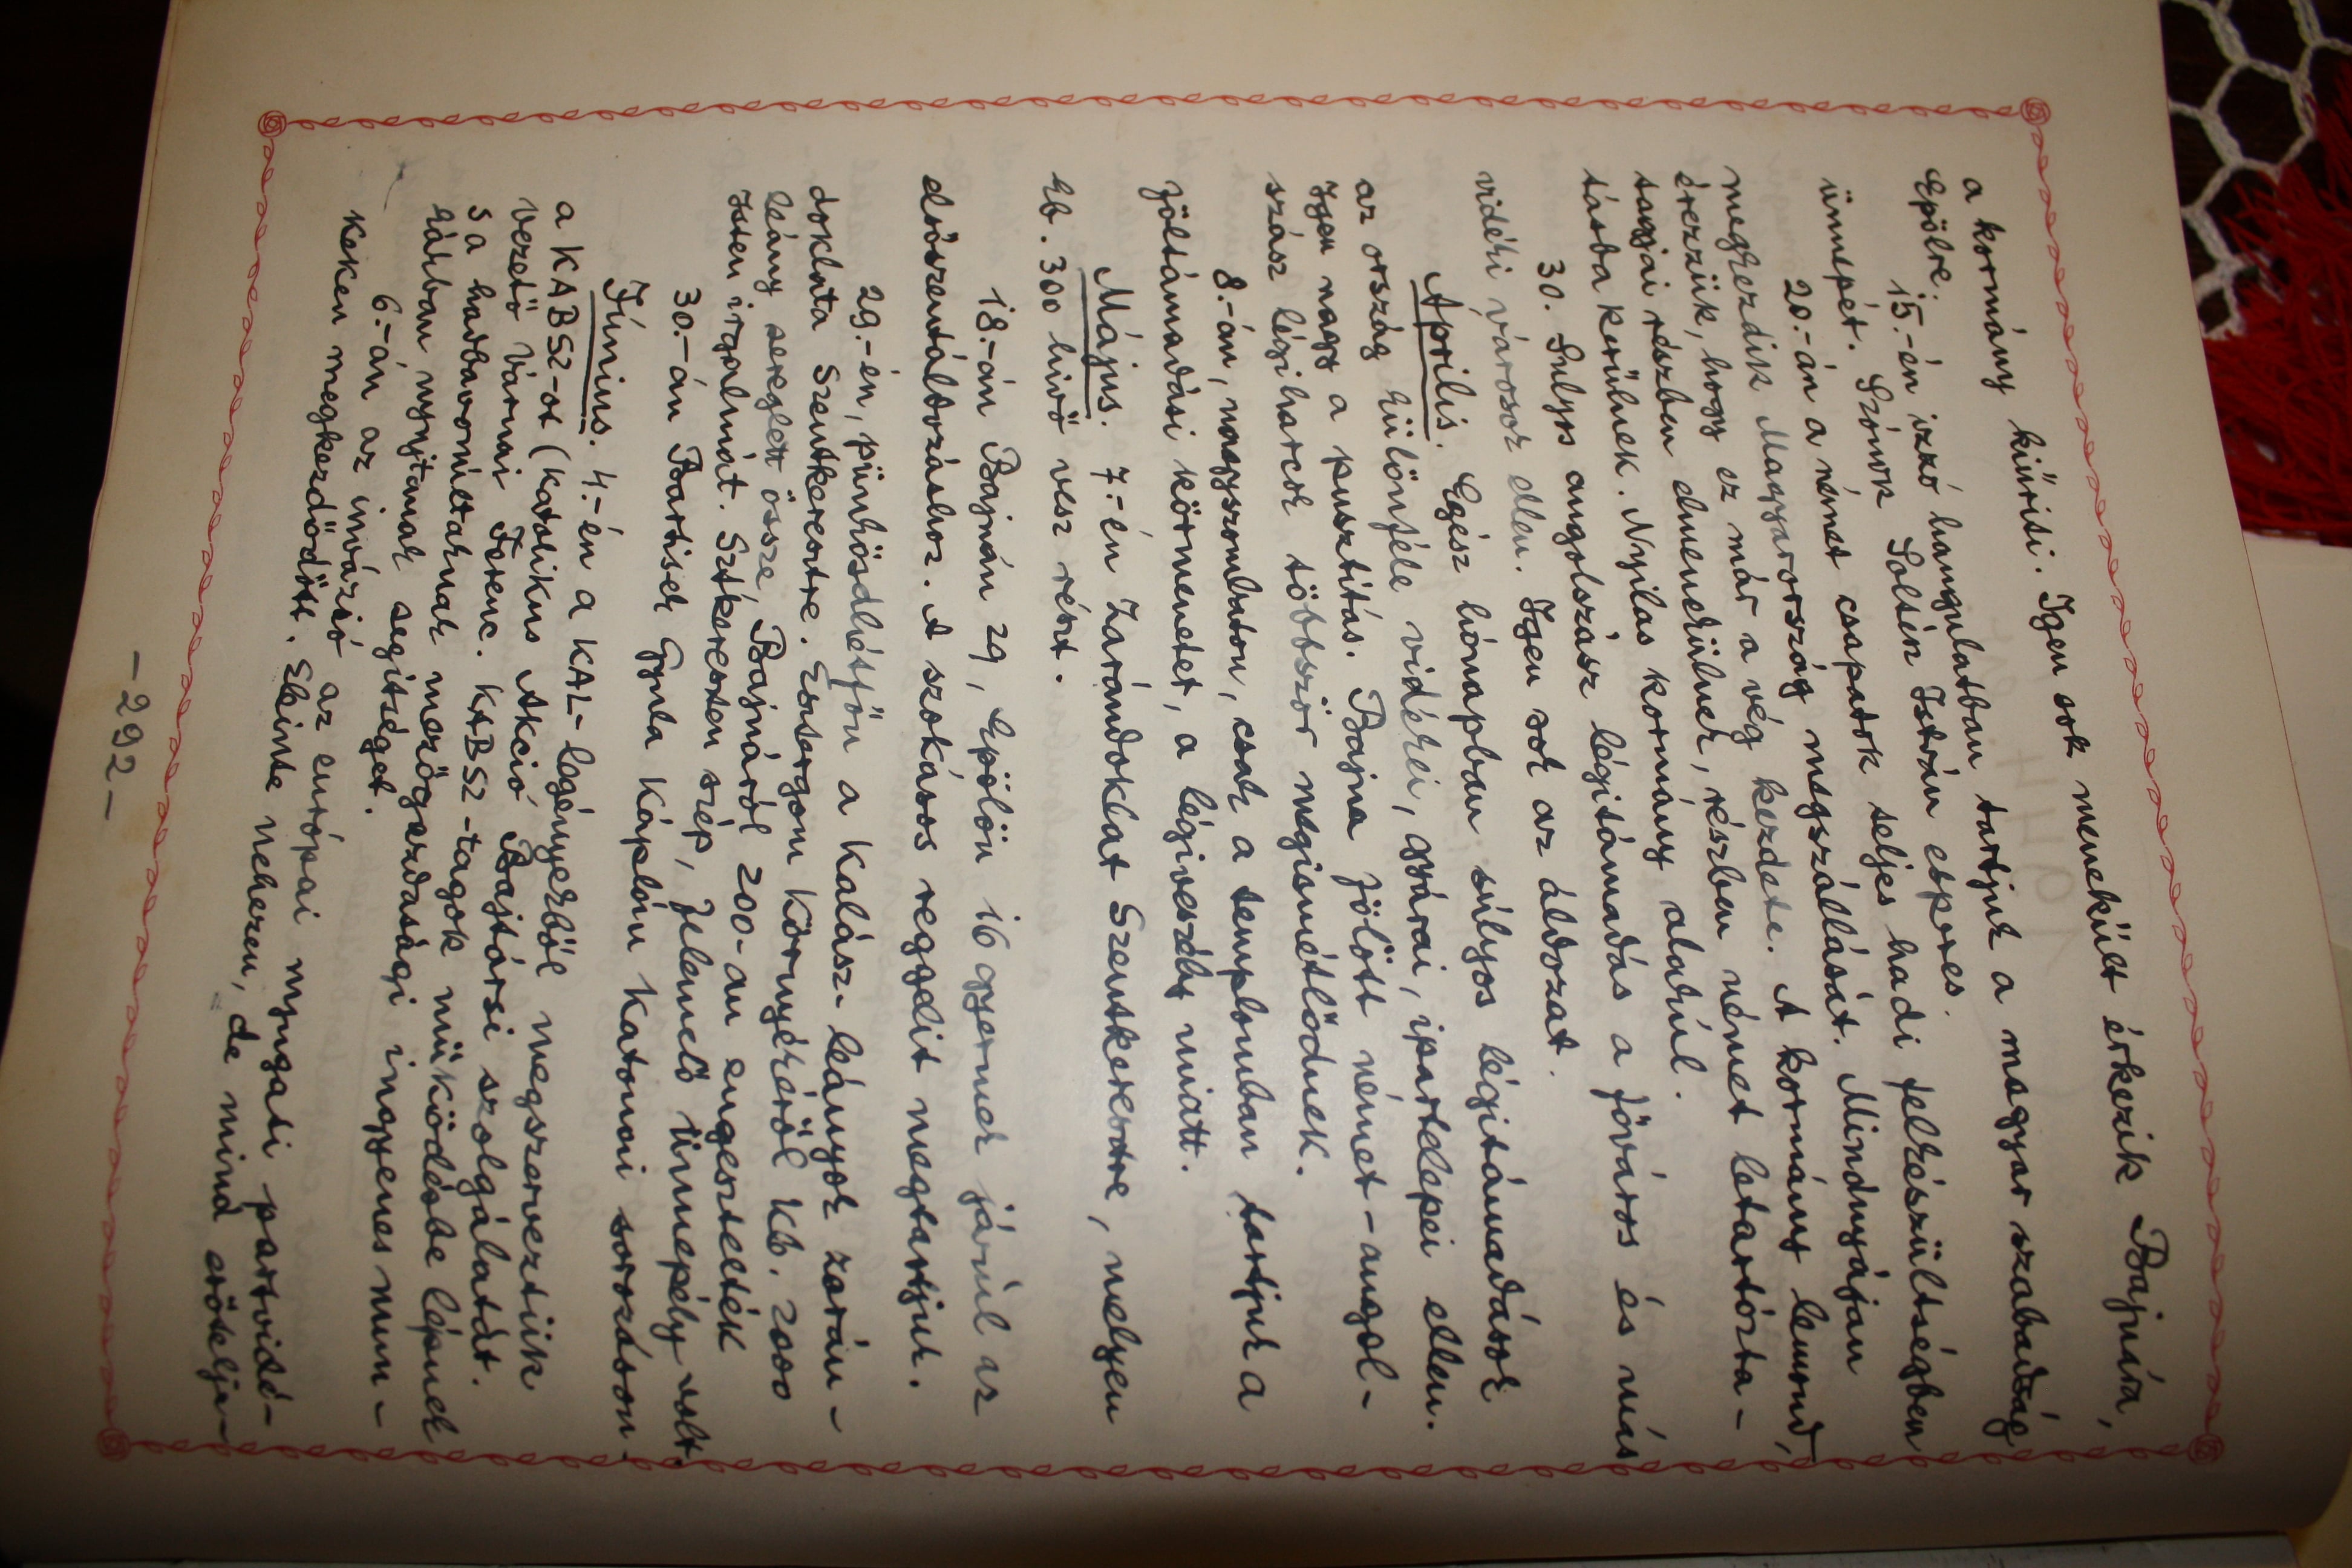 a kormány kiüriti. Igen sok menekült érkezik Bajnára,
Epölre.
15.-én izzó hangulatban tartjuk a magyar szabadság
ünnepét. Szónok Soltész István esperes.
20.-án a német csapatok teljes hadi felkészültségben
megkezdik Magyarország megszállását. Mindnyájan
érezzük, hogy ez már a vég kezdete. A kormány lemond,
tagjai részben elmenekülnek, részben német letartózta-
tásba kerülnek. Nyilas kormány alakúl.
30. Sulyos angolszász légitámadás a főváros és más
vidéki városok ellen. Igen sok az áldozat.
Április. Egész hónapban súlyos légitámadások
az ország különféle vidékei, gyárai, ipartelepei ellen.
Igen nagy a pusztítás. Bajna fölött német-angol-
szász légiharcok többször megismétlődnek.
8.-án, nagyszombaton, csak a templomban tartjuk a
föltámadási körmenetet, a légiveszély miatt.
Május. 7.-én Zarándoklat Szentkeresztre, melyen
kb. 300 hivő vesz részt.
18.-án Bajnán 29, Epölön 16 gyermek járúl az
elsőszentáldozáshoz. A szokásos reggelit megtartjuk.
29.-én, pünkösdhétfőn a Kalász-leányok zarán-
doklata Szentkeresztre. Esztergom Környékéről Kb. 2000
leány sereglett össze, Bajnáról 200-an engesztelték
Isten irgalmát. Sztkereszten szép, felemelő ünnepély volt.
30.-án Bartisek Gyula Káplán Katonai sorozáson
Június. 4.-én a KAL-legényekből megszerveztük
a KABSZ-ot (Katolikus Akció Bajtársi szolgálatát.
Vezető Várnai Ferenc. KABSZ-tagok működésbe lépnek
s a hadbavonultaknak mezőgazdasági ingyenes mun-
kában nyujtanak segitséget.
6.-án az invázió az európai nyugati partvidé-
keken megkezdődött. Eleinte nehezen, de mind erőtelje-
-292-